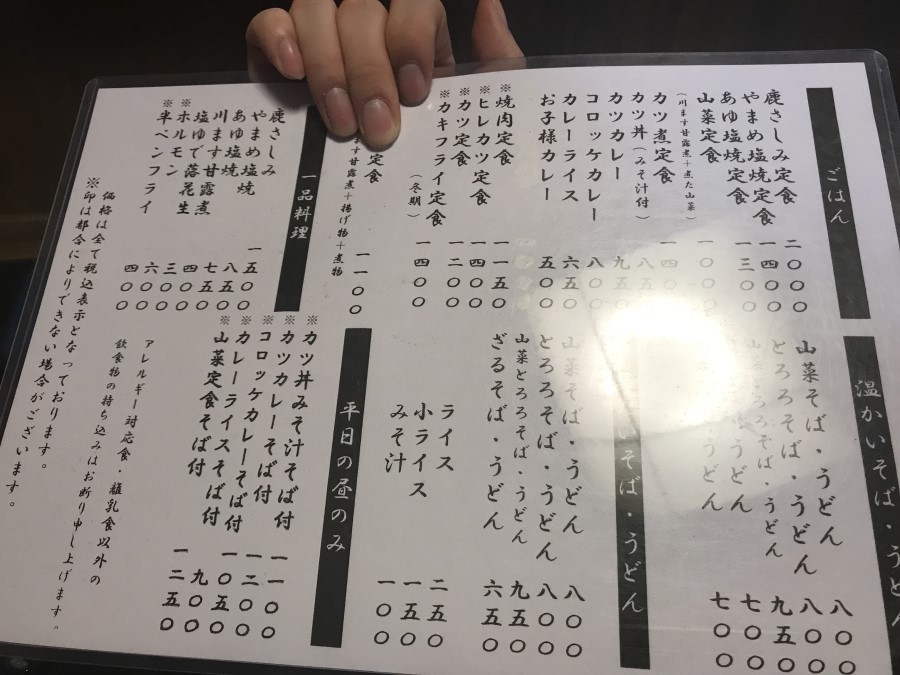 ごはん
鹿さしみ定食 二〇〇〇
やまめ塩焼定食 一四〇〇
あゆ塩焼定食 一三〇〇
山菜定食 一〇〇〇
(川ます甘露煮+煮た山菜)
カツ煮定食
カツ丼(みそ汁付)
カツカレー 九五〇
コロッケカレー 八〇〇
カレーライス 六五〇
お子様カレー 五〇〇
※焼肉定食 一一五〇
※ヒレカツ定食 一四〇〇
※カツ定食 一二〇〇
※カキフライ定食(冬期) 一四〇〇
定食 一一〇〇
ます甘露煮+揚げ物+煮物
一品料理
鹿さしみ 一五〇〇
やまめ塩焼 八五〇
あゆ塩焼 七五〇
川ます甘露煮 四〇〇
塩ゆで落花生 三〇〇
※ホルモン 六〇〇
※串ベンフライ 四〇〇
温かいそば・うどん
山菜そば・うどん 八〇〇
とろろそば・うどん 八〇〇
山菜とろろそば・うどん 九五〇
うどん 七〇〇
うどん 七〇〇
そば・うどん
山菜そば・うどん 八〇〇
とろろそば・うどん 八〇〇
山菜とろろそば・うどん 九五〇
ざるそば・うどん 六五〇
ライス 二五〇
小ライス 一五〇
みそ汁 一〇〇
平日の昼のみ
※カツ丼みそ汁そば付 一一〇〇
※カツカレーそば付 一二〇〇
※コロッケカレーそば付 一〇五〇
※カレーライスそば付 九〇〇
※山菜定食そば付 一二五〇
アレルギー対応食・離乳食以外の
飲食物の持ち込みはお断り申し上げます。
価格は全て税込表示となっております。
※印は都合によりできない場合がございます。